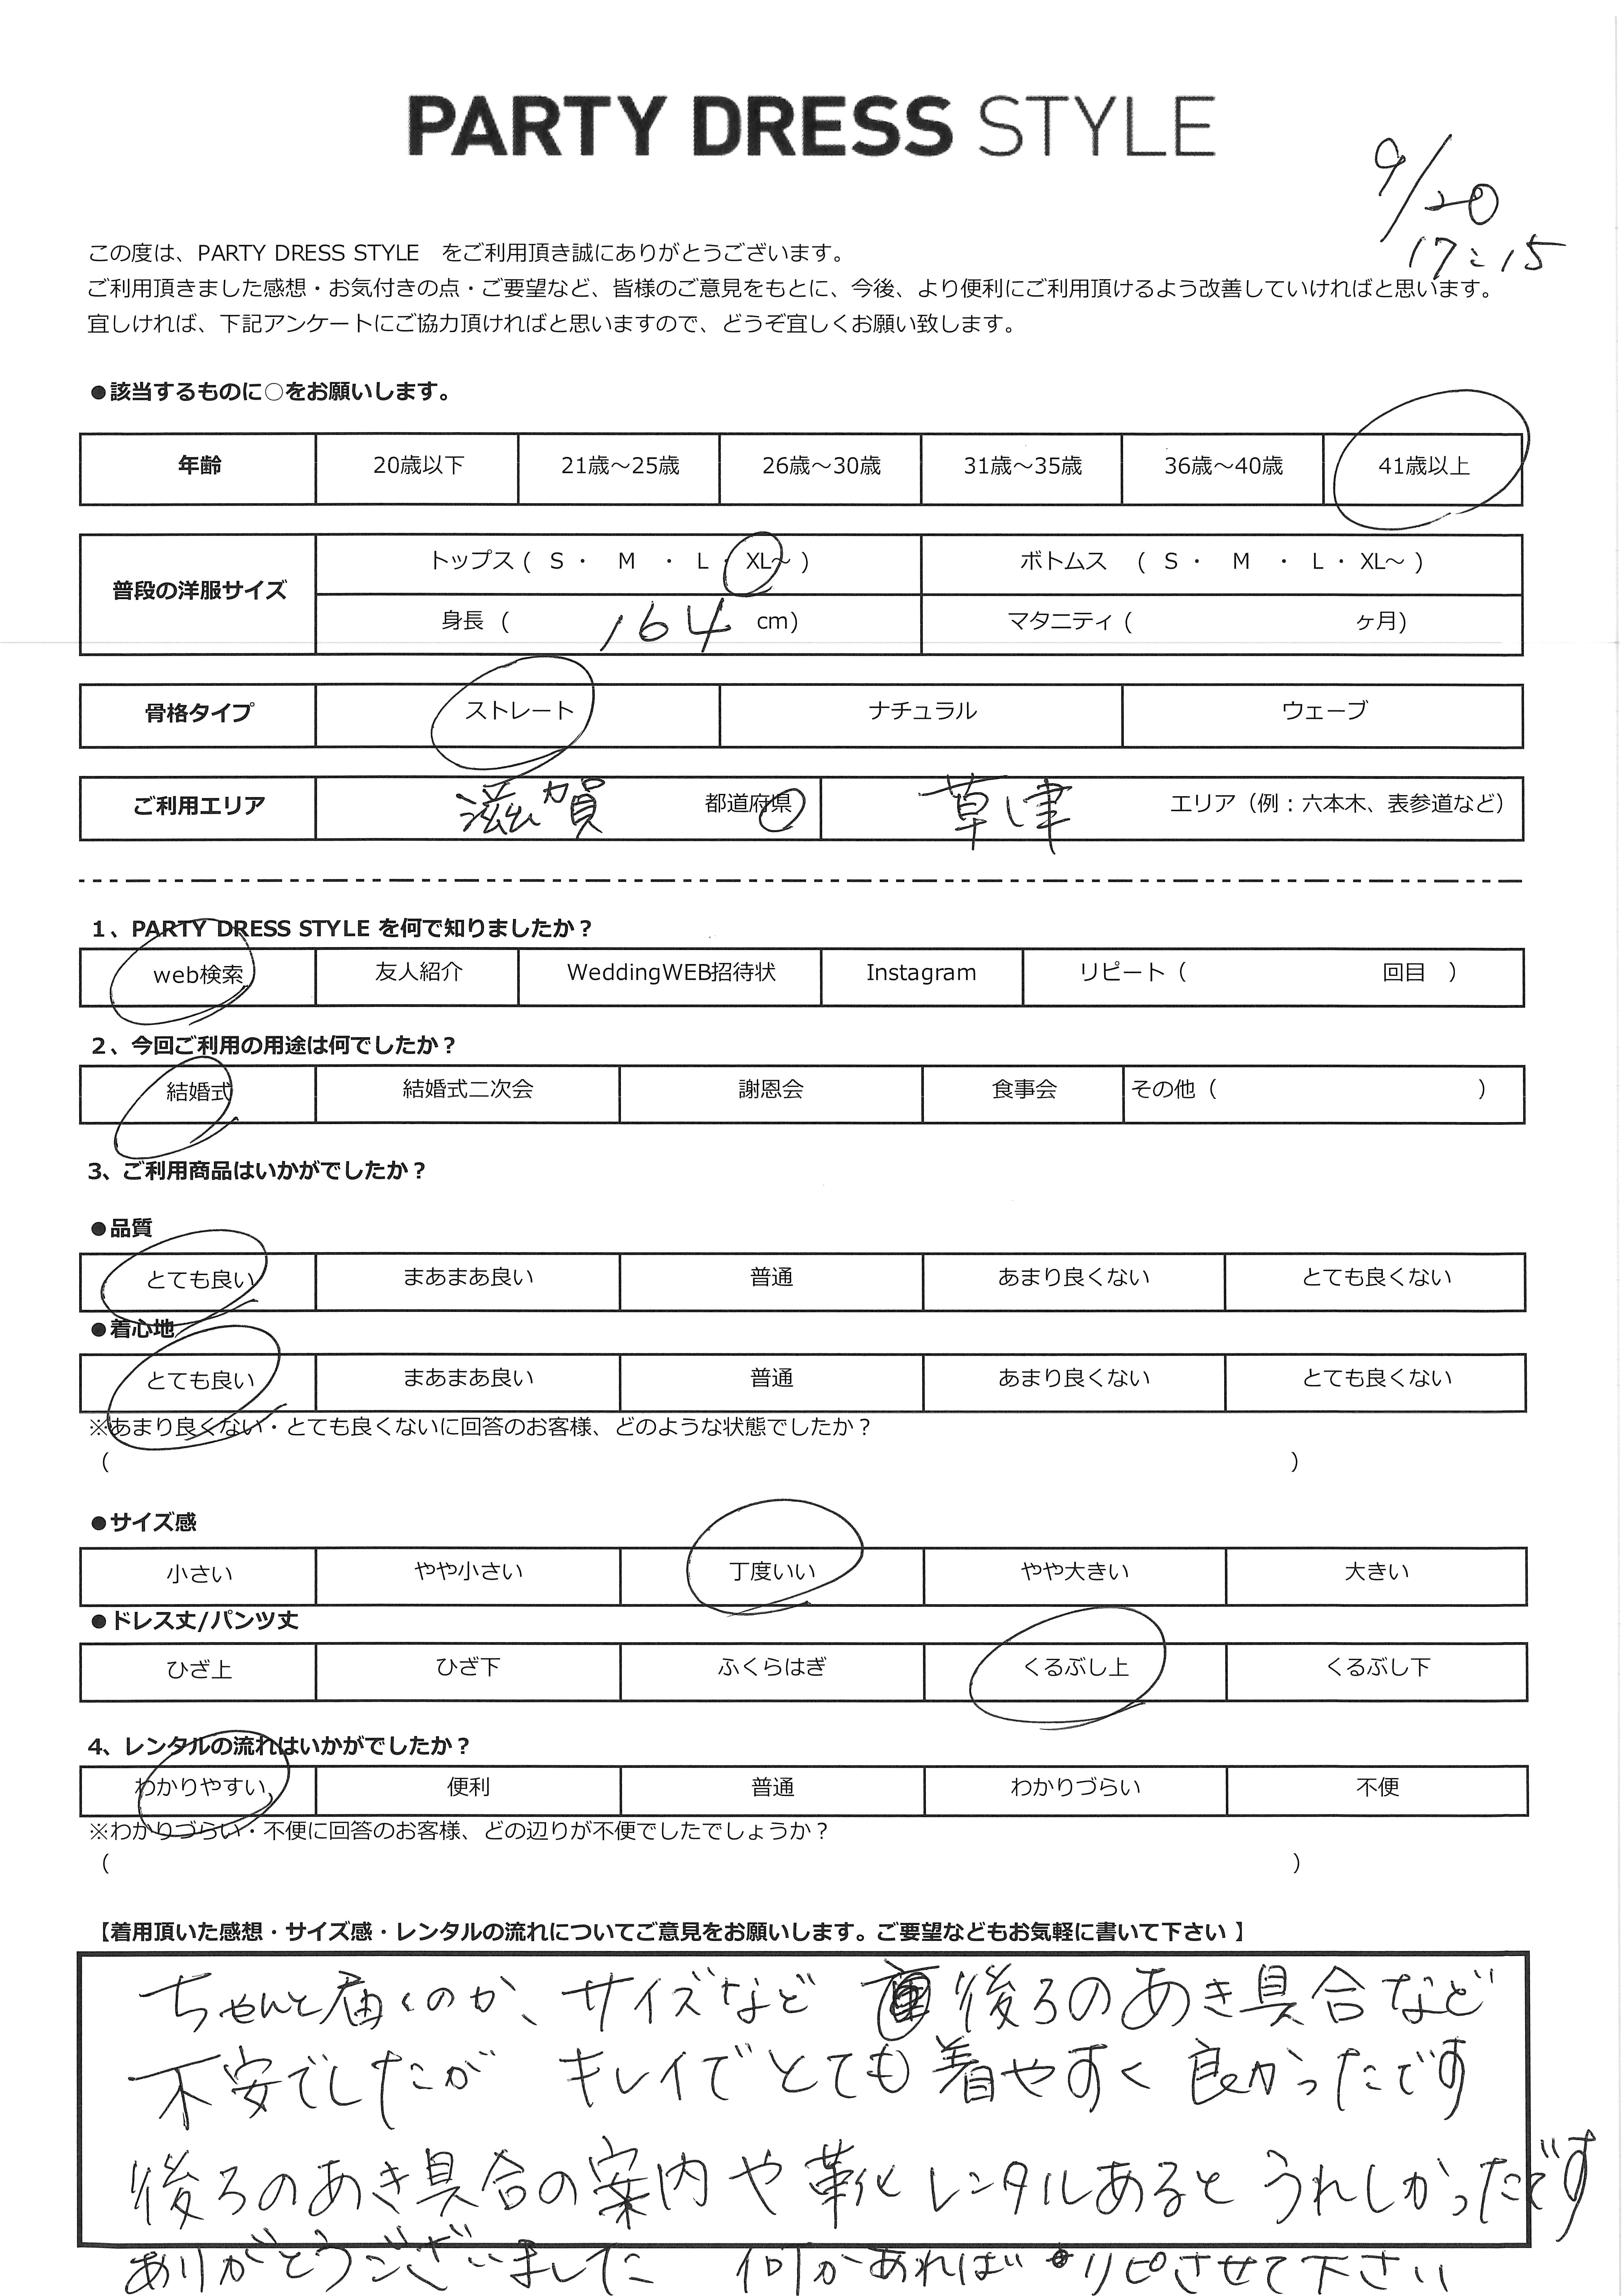 PARTY DRESS STYLE
9/20
17:15
この度は、PARTY DRESS STYLE をご利用頂き誠にありがとうございます。
ご利用頂きました感想・お気付きの点・ご要望など、皆様のご意見をもとに、今後、より便利にご利用頂けるよう改善していければと思います。
宜しければ、下記アンケートにご協力頂ければと思いますので、どうぞ宜しくお願い致します。
●該当するものに○をお願いします。
年齢 20歳以下 21歳～25歳 26歳～30歳 31歳～35歳 36歳～40歳 41歳以上
普段の洋服サイズ トップス ( S ・ M ・ L ・ XL～ ) ボトムス ( S ・ M ・ L ・ XL～ )
身長 ( 164 cm) マタニティ ( ヶ月)
骨格タイプ ストレート ナチュラル ウェーブ
ご利用エリア 滋賀 都道府県 草津 エリア（例：六本木、表参道など）
1、PARTY DRESS STYLE を何で知りましたか？
web検索 友人紹介 WeddingWEB招待状 Instagram リピート（ 回目 ）
2、今回ご利用の用途は何でしたか？
結婚式 結婚式二次会 謝恩会 食事会 その他（ ）
3、ご利用商品はいかがでしたか？
●品質
とても良い まあまあ良い 普通 あまり良くない とても良くない
●着心地
とても良い まあまあ良い 普通 あまり良くない とても良くない
※あまり良くない・とても良くないに回答のお客様、どのような状態でしたか？
（ ）
●サイズ感
小さい やや小さい 丁度いい やや大きい 大きい
●ドレス丈/パンツ丈
ひざ上 ひざ下 ふくらはぎ くるぶし上 くるぶし下
4、レンタルの流れはいかがでしたか？
わかりやすい 便利 普通 わかりづらい 不便
※わかりづらい・不便に回答のお客様、どの辺りが不便でしたでしょうか？
（ ）
【着用頂いた感想・サイズ感・レンタルの流れについてご意見をお願いします。ご要望などもお気軽に書いて下さい 】
ちゃんと届くのか、サイズなど 後ろのあき具合など
不安でしたが キレイでとても着やすく 良かったです
後ろのあき具合の案内や靴レンタルあると うれしかったです
ありがとうございました 何かあれば リピさせて下さい